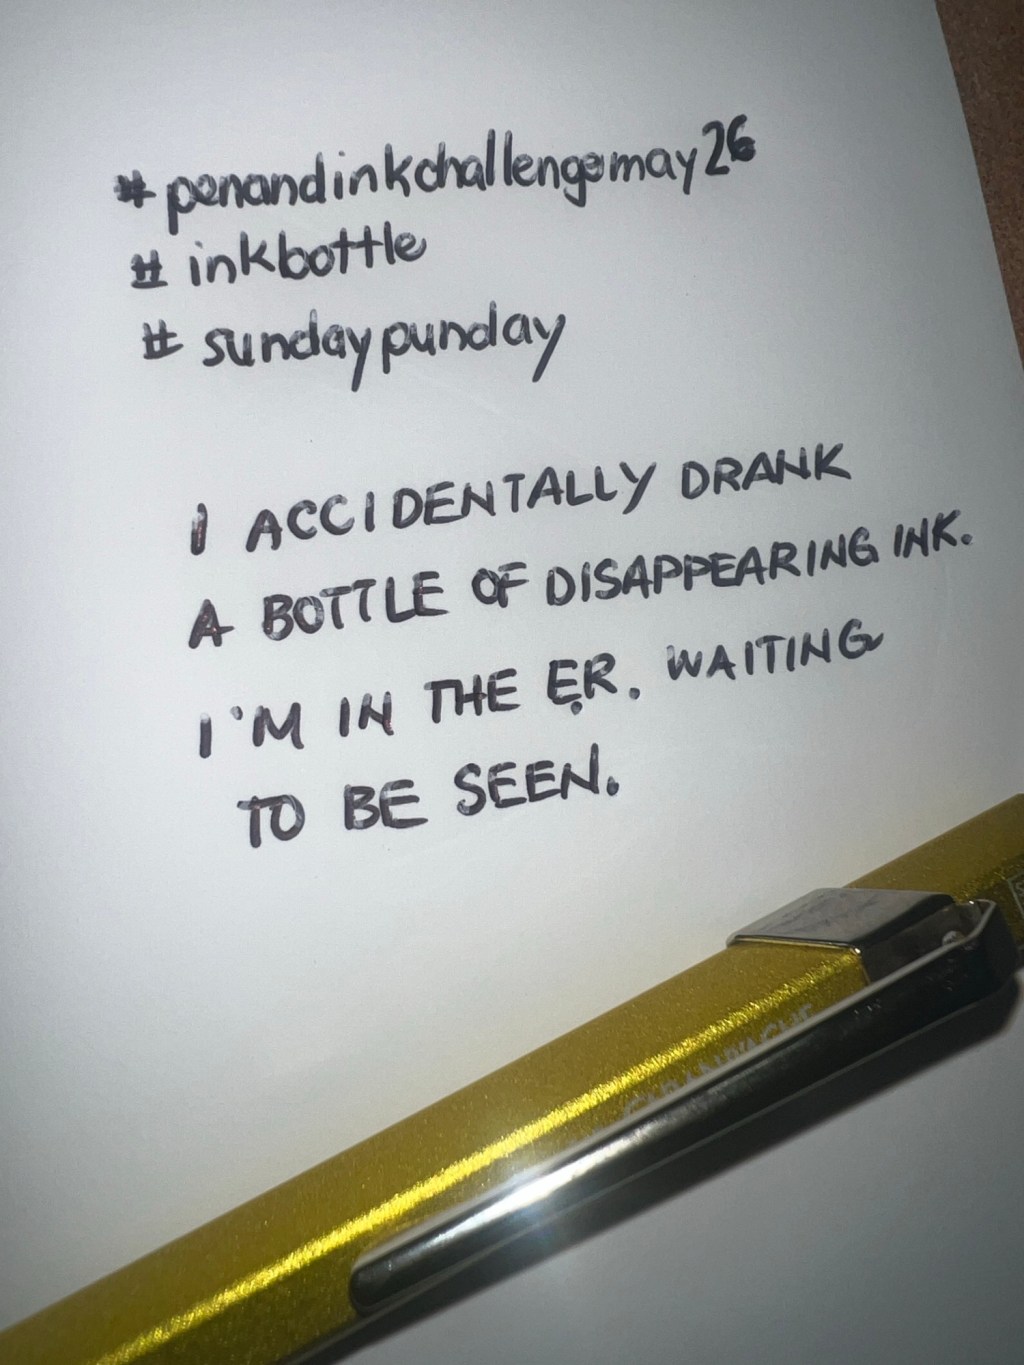 # penandinkchallengemay26
# inkbottle
# sundaypunday
I ACCIDENTALLY DRANK
A BOTTLE OF DISAPPEARING INK.
I'M IN THE E.R. WAITING
TO BE SEEN.
CARAN D'ACHE